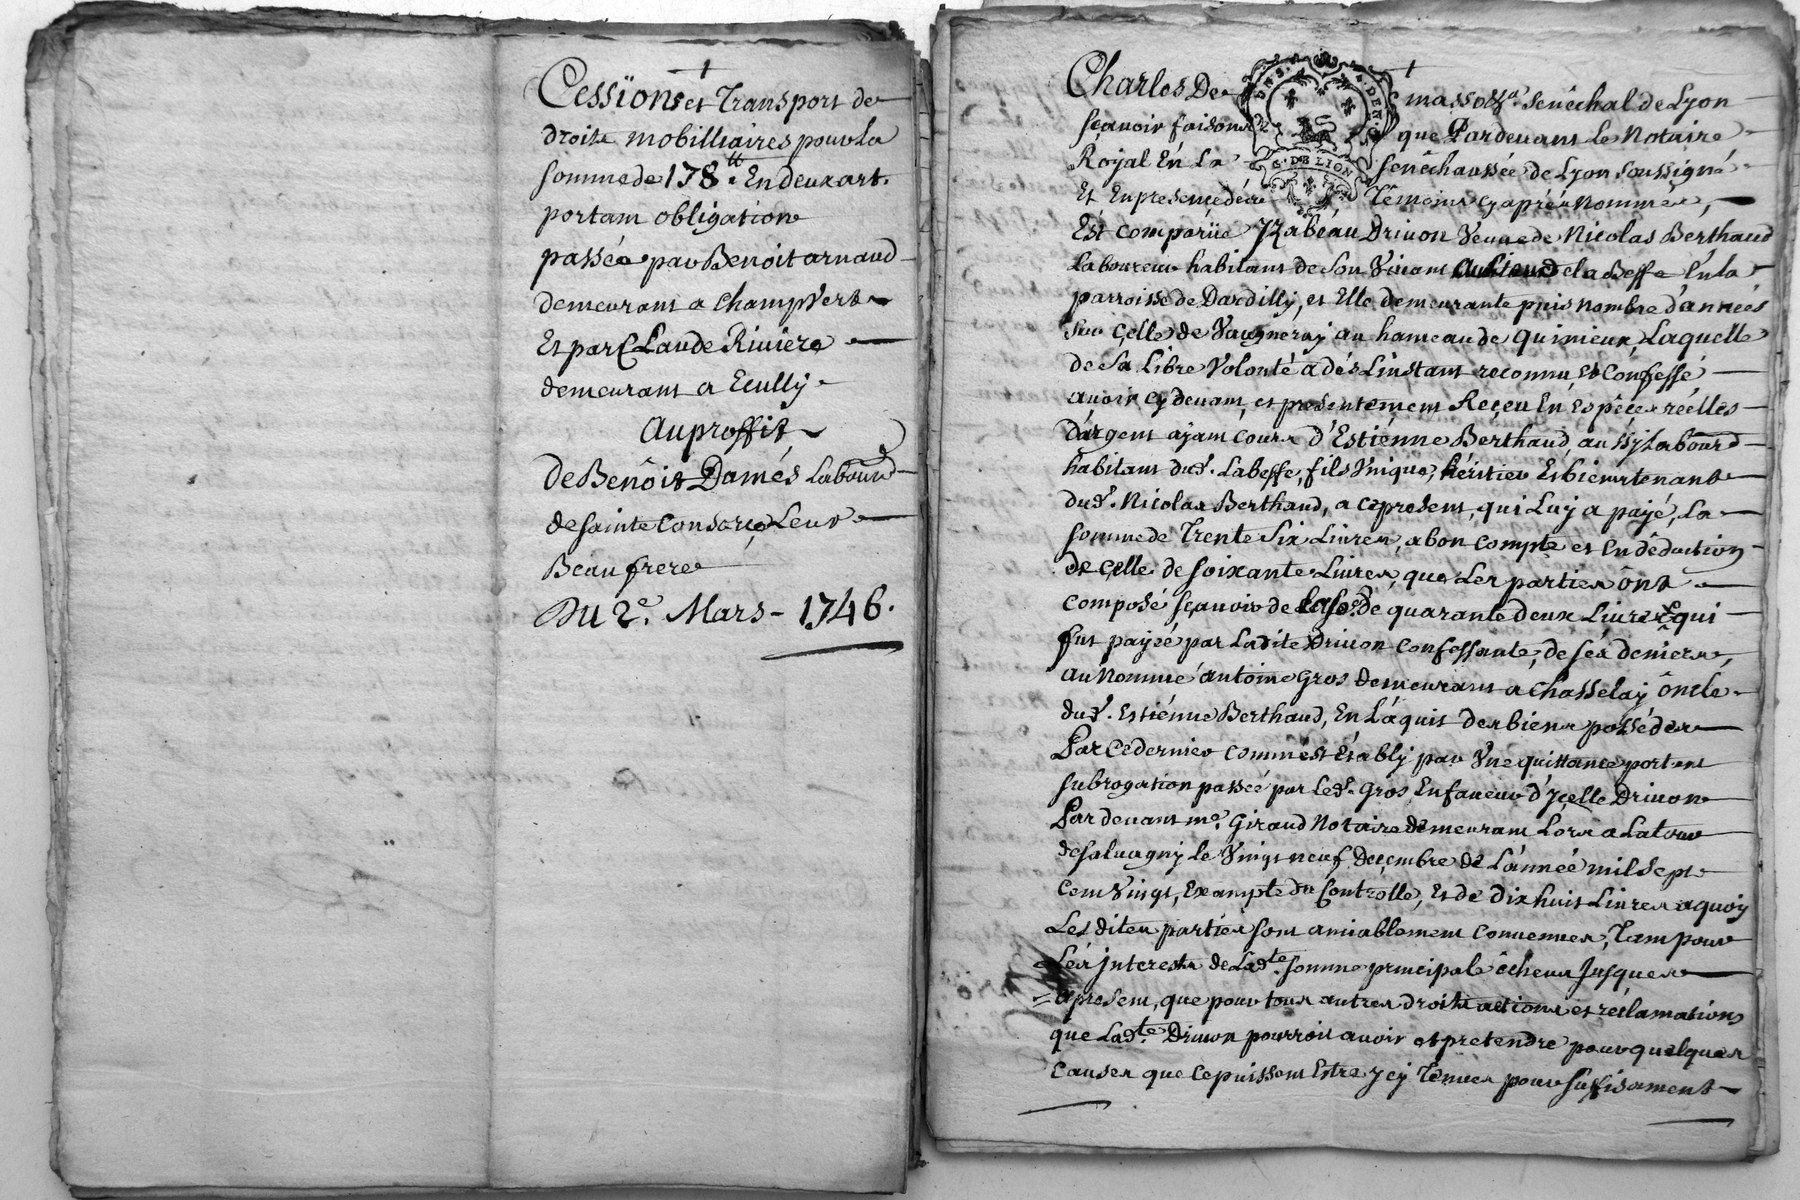 Cessions et Transport de
droits mobilliaires pour la
somme de 178 ₶. En deux art.
portant obligation
passée par Benoit arnaud
demeurant a Champvert
Et par Claude Riviere
demeurant a Ecully
Au proffit
de Benoît Damés Labour
de sainte Consorce Leur
Beaufrere
Du 2e. Mars - 1746.
Charles De masso &a. senechal de Lyon
sçavoir faisons que Pardevant le Notaire
Royal En La senéchaussée de Lyon soussigné
Et En presence des témoins cy aprés nommes,
Est comparüe Yzabéau Drivon Veuve de Nicolas Berthaud
Laboureur habitant de son Vivant au lieu de la Beffe En la
parroisse de Dardilly, et Elle demeurante puis nombre d'années
sur çelle de Vaugneray au hameau de quinieux, Laquelle
de sa Libre Volonté a dés L'instant reconnu et Confessé
avoir cy devant, et presentement Reçeu En Espêces réelles
d'argent ayant cours d'Estiénne Berthaud aussy Labour
habitant dud. Labeffe, fils Vnique, héritier Et bientenant
dud. Nicolas Berthaud, a ce present, qui Luy a payé, La
somme de Trente Six Livres, a bon compte et En déduction
de çelle de soixante Livres, que Les parties ônt
composé sçavoir de de quarante deux Livres qui
fut payée par Ladite Drivon confessante, de sés deniers,
au Nommé antoine Gros demeurant a Chasselay ôncle
dud. Estiénne Berthaud, En L'aquit des biens possédes
Par ce dernier comm'est Etably par Vne quittance portant
subrogation passée par Led. Gros En faveur d'Yçelle Drivon
Pardevant me. Giraud Notaire demeurant Lors a Latour
de salvagny le Vingt neuf deçembre de L'année mil sept
cent Vingt, Exampte du Controlle, Et de dix huit Livres a quoy
Les dites parties sont amiablement convenues, Tant pour
Les jnterests de Ladte. somme principale êcheus jusques
a present, que pour tous autres droits actions et réclamations
que Ladte. Drivon pourroit avoir et pretendre pour quelques
Causes que ce puissent Estre, Ycy Tenues pour suffisament